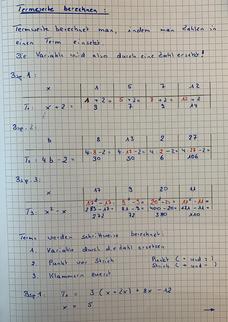 Termwerte berechnen :
Termwerte berechnet man, indem man Zahlen in
einen Term einsetzt.
Die Variable wird also durch eine Zahl ersetzt!
Bsp. 1 :
x 1 5 7 12
T₁: x + 2 = 1 + 2 = 5 + 2 = 7 + 2 = 12 + 2
3 7 9 14
Bsp. 2 :
b 8 13 2 27
T₂: 4·b - 2 = 4·8 - 2 = 4·13 - 2 = 4·2 - 2 = 4·27 - 2 =
30 50 6 106
Bsp. 3 :
x 17 9 20 11
T₃: x² - x 17² - 17 = 9² - 9 = 20² - 20 = 11² - 11 =
81 - 9 = 400 - 20 = 121 - 11 =
272 72 380 110
Terme werden schrittweise berechnet:
1. Variable durch die Zahl ersetzen
2. Punkt vor Strich Punkt ( · und : )
Strich ( + und - )
3. Klammern zuerst
Bsp 1: = 3 ( x + 2x ) + 8x - 12
x = 5